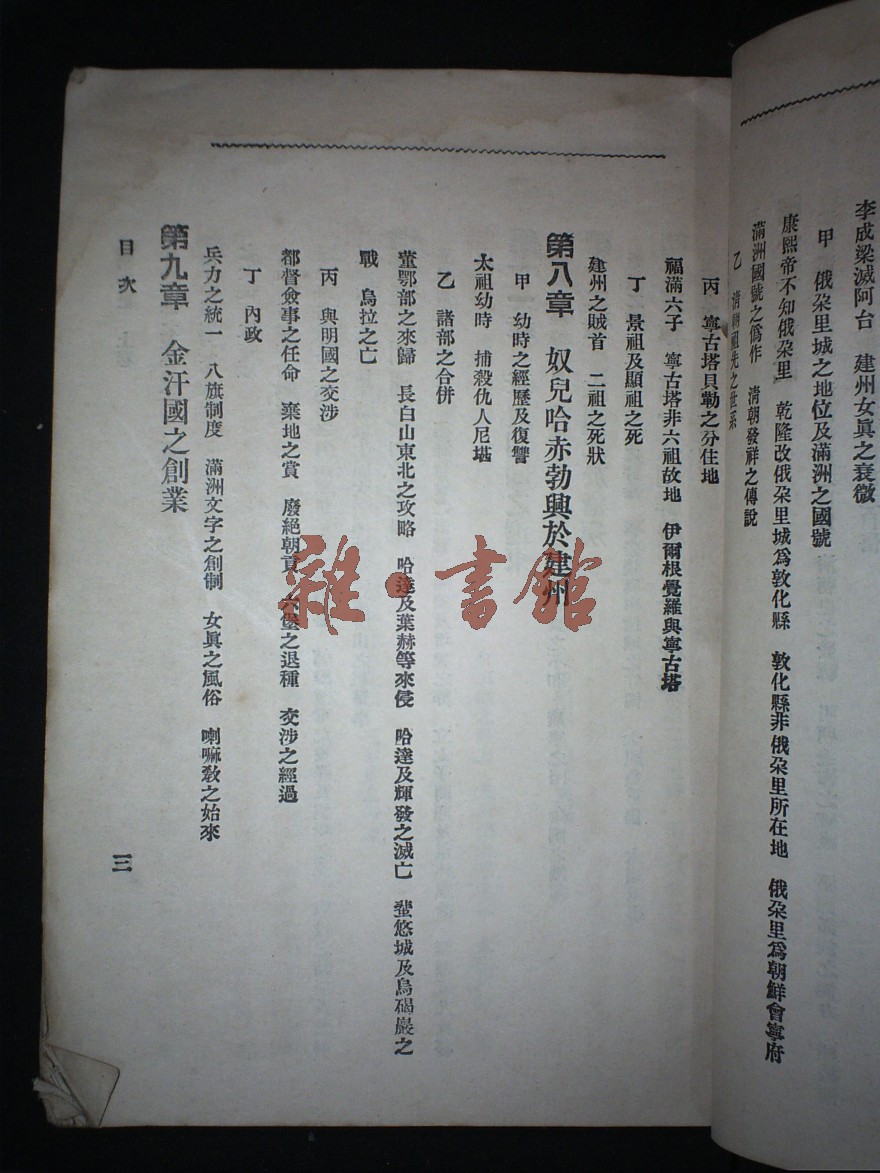 李成梁滅阿台　建州女眞之衰微
甲　俄朶里城之地位及滿洲之國號
康熙帝不知俄朶里　乾隆改俄朶里城爲敦化縣　敦化縣非俄朶里所在地　俄朶里爲朝鮮會寧府
滿洲國號之僞作　清朝發祥之傳說
乙　清朝祖先之世系
丙　寧古塔貝勒之分住地
福滿六子　寧古塔非六祖故地　伊爾根覺羅與寧古塔
丁　景祖及顯祖之死
建州之賊首　二祖之死狀
第八章　奴兒哈赤勃興於建州
甲　幼時之經歷及復讐
太祖幼時　捕殺仇人尼堪
乙　諸部之合併
董鄂部之來歸　長白山東北之攻略　哈達及葉赫等來侵　哈達及輝發之滅亡　蜚悠城及烏碣巖之
戰　烏拉之亡
丙　與明國之交涉
都督僉事之任命　棄地之賞　廢絕朝貢　六堡之退種　交涉之經過
丁　內政
兵力之統一　八旗制度　滿洲文字之創制　女眞之風俗　喇嘛敎之始來
第九章　金汗國之創業
目次
三
雜·書館